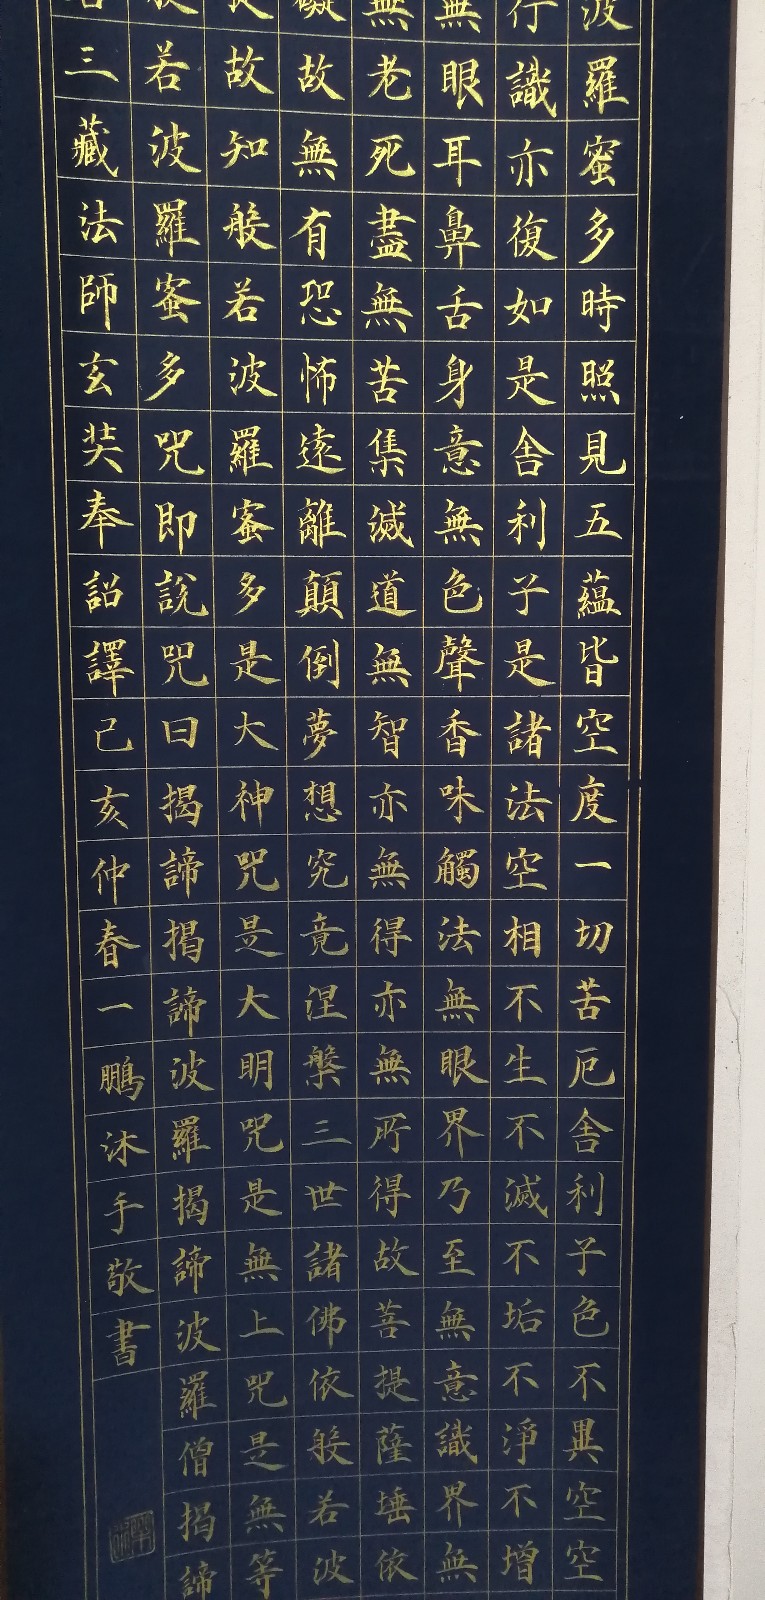 波羅蜜多時照見五蘊皆空度一切苦厄舍利子色不異空空
行識亦復如是舍利子是諸法空相不生不滅不垢不淨不增
無眼耳鼻舌身意無色聲香味觸法無眼界乃至無意識界無
無老死盡無苦集滅道無智亦無得亦無所得故菩提薩埵依
礙故無有恐怖遠離顛倒夢想究竟涅槃三世諸佛依般若波
故知般若波羅蜜多是大神咒是大明咒是無上咒是無等
般若波羅蜜多咒即說咒曰揭諦揭諦波羅揭諦波羅僧揭諦
三藏法師玄奘奉詔譯己亥仲春一鵬沐手敬書